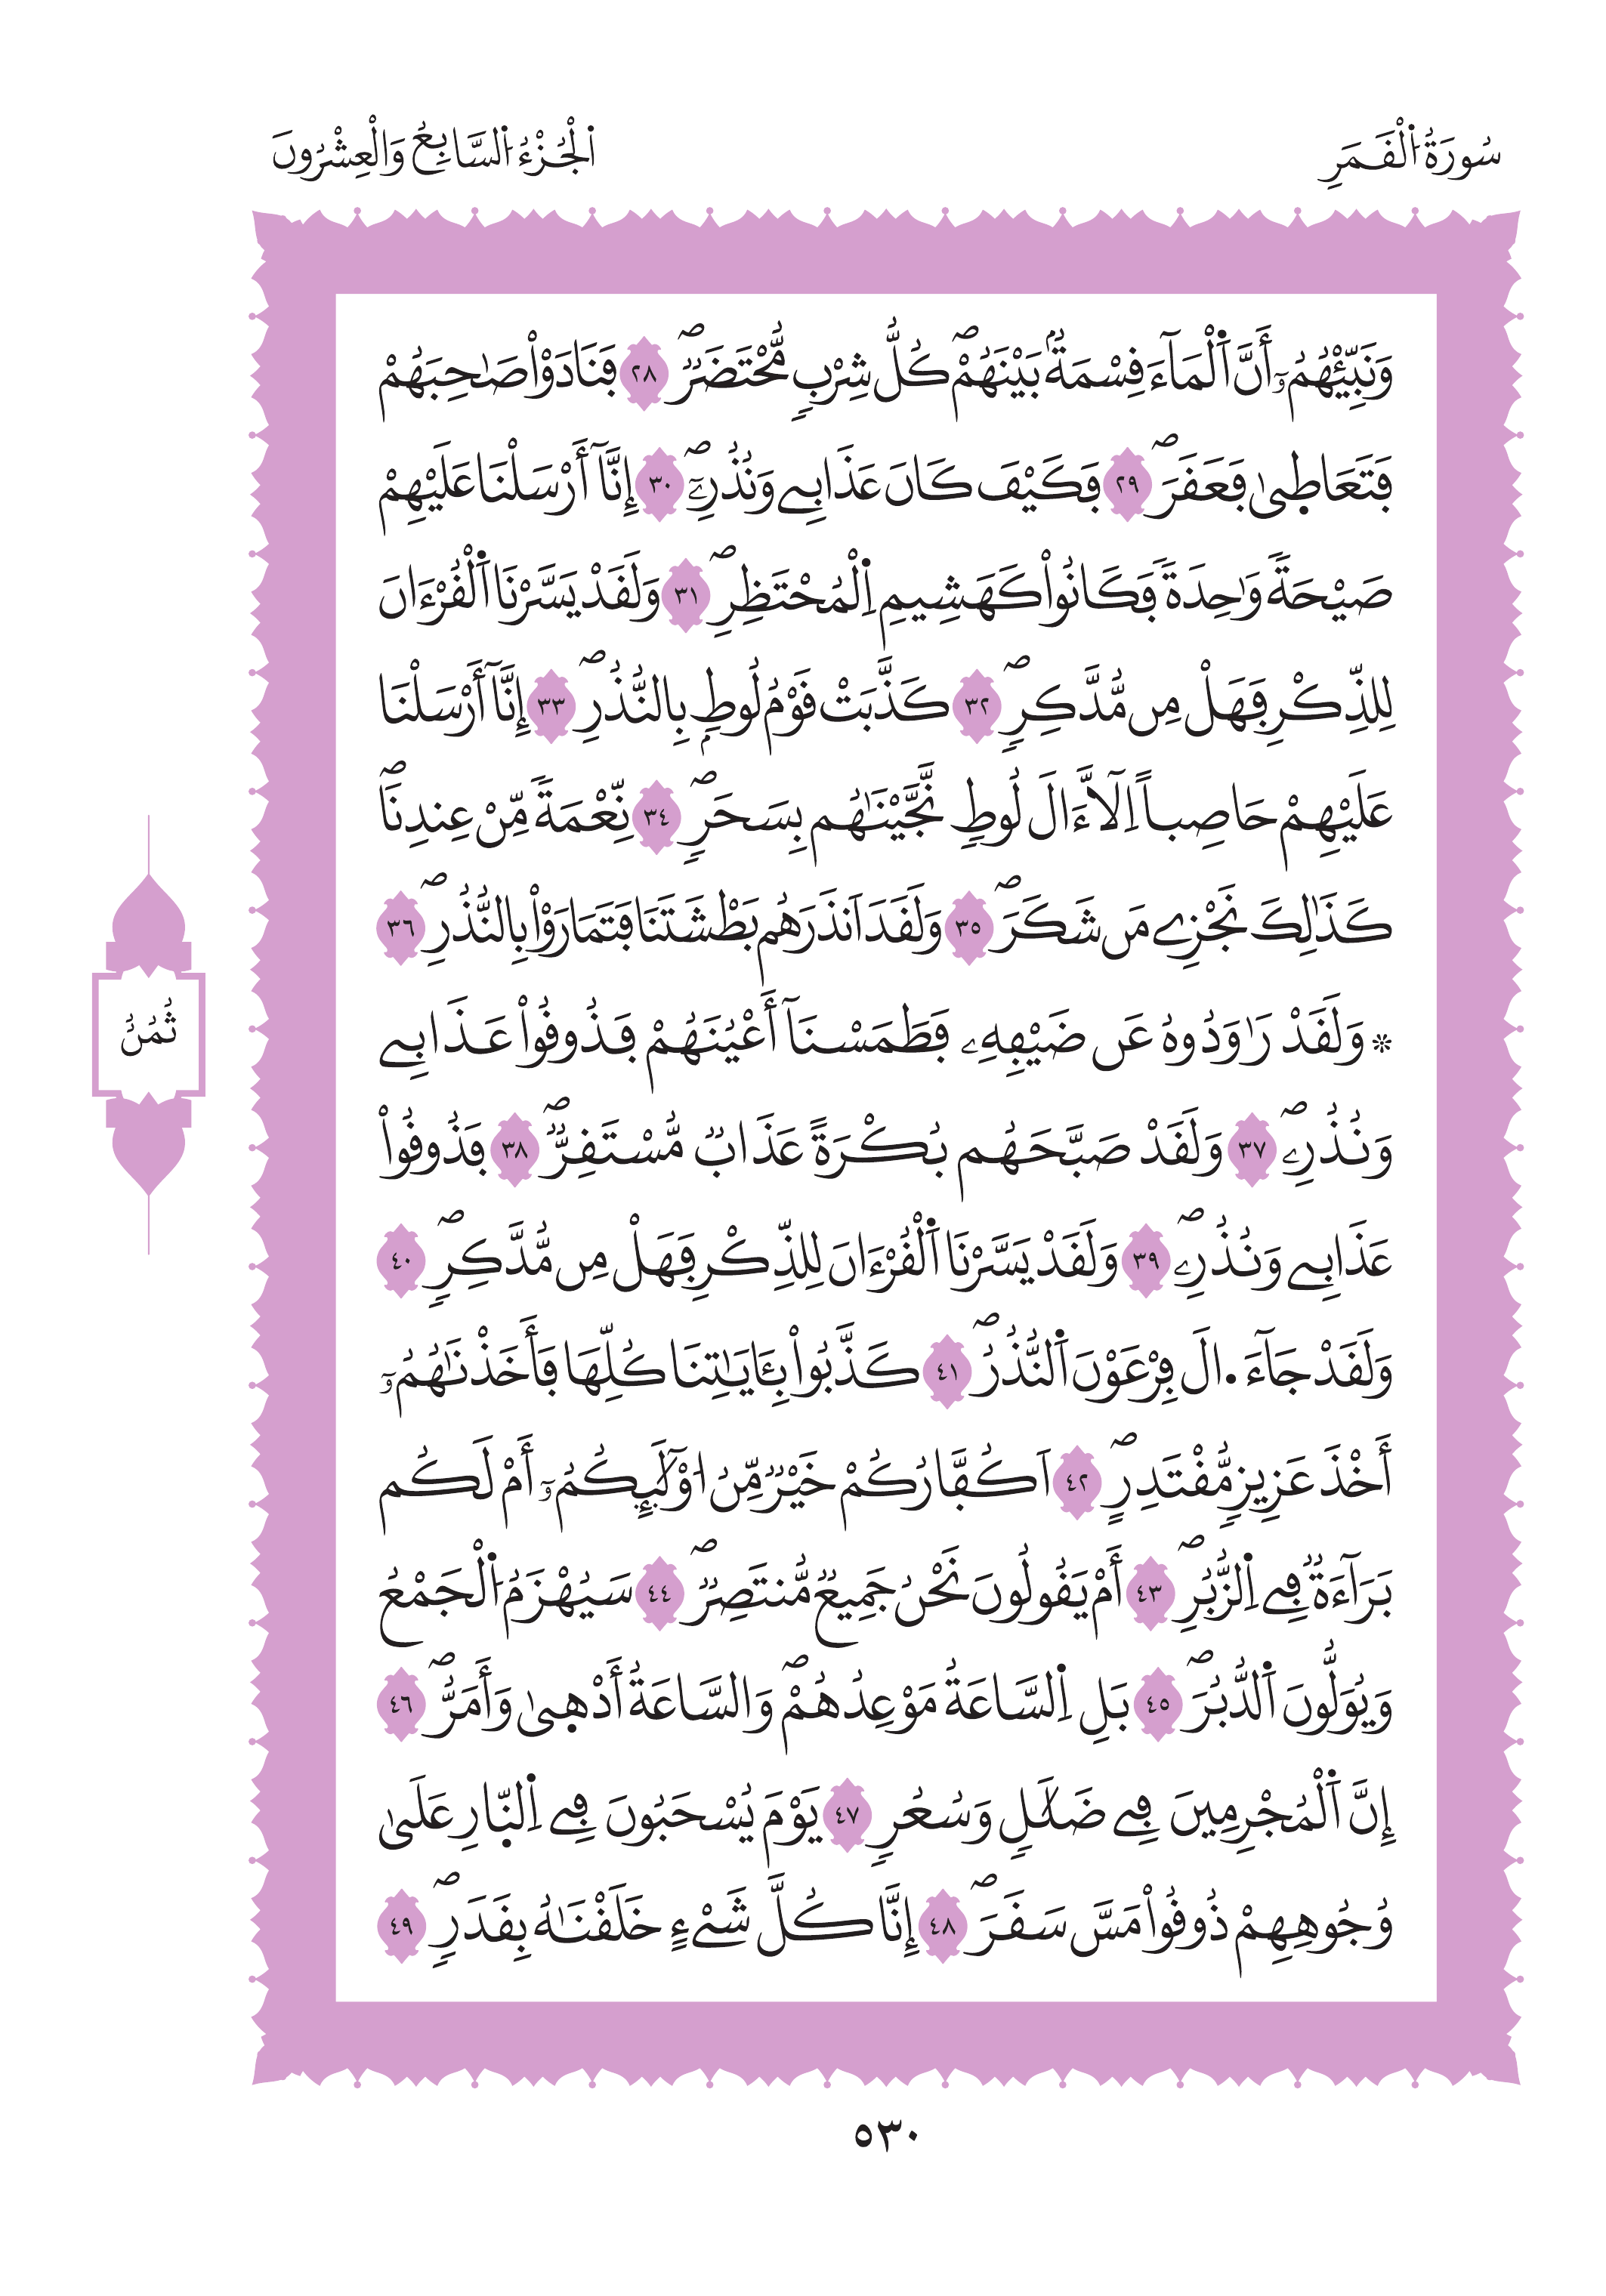 سُورَةُ اُلْقَمَرِ
اَلْجُزْءُ اُلسَّابِعُ وَالْعِشْرُونَ
وَنَبِّئْهُمُۥٓ أَنَّ اَلْمَآءَ قِسْمَةُۢ بَيْنَهُمْۖ كُلُّ شِرْبٖ مُّحْتَضَرٞۖ ٢٨ فَنَادَوْاْ صَٰحِبَهُمْ
فَتَعَاط۪ىٰ فَعَقَرَۖ ٢٩ فَكَيْفَ كَانَ عَذَابِے وَنُذُرِۦٓۖ ٣٠ إِنَّآ أَرْسَلْنَا عَلَيْهِمْ
صَيْحَةٗ وَٰحِدَةٗ فَكَانُواْ كَهَشِيمِ اِلْمُحْتَظِرِۖ ٣١ وَلَقَدْ يَسَّرْنَا اَلْقُرْءَانَ
لِلذِّكْرِ فَهَلْ مِن مُّدَّكِرٖۖ ٣٢ كَذَّبَتْ قَوْمُ لُوطِۢ بِالنُّذُرِۖ ٣٣ إِنَّآ أَرْسَلْنَا
عَلَيْهِمْ حَاصِباً اِلَّآ ءَالَ لُوطٖ نَّجَّيْنَٰهُم بِسَحَرٖۖ ٣٤ نِّعْمَةٗ مِّنْ عِندِنَاۖ
كَذَٰلِكَ نَجْزِے مَن شَكَرَۖ ٣٥ وَلَقَدَ اَنذَرَهُم بَطْشَتَنَا فَتَمَارَوْاْ بِالنُّذُرِۖ ٣٦
۞ وَلَقَدْ رَٰوَدُوهُ عَن ضَيْفِهِۦ فَطَمَسْنَآ أَعْيُنَهُمْ فَذُوقُواْ عَذَابِے
وَنُذُرِۦۖ ٣٧ وَلَقَدْ صَبَّحَهُم بُكْرَةً عَذَابٞ مُّسْتَقِرّٞۖ ٣٨ فَذُوقُواْ
عَذَابِے وَنُذُرِۦۖ ٣٩ وَلَقَدْ يَسَّرْنَا اَلْقُرْءَانَ لِلذِّكْرِ فَهَلْ مِن مُّدَّكِرٖۖ ٤٠
وَلَقَدْ جَآءَ ا۬لَ فِرْعَوْنَ اَلنُّذُرُۖ ٤١ كَذَّبُواْ بِـَٔايَٰتِنَا كُلِّهَا فَأَخَذْنَٰهُمُۥٓ
أَخْذَ عَزِيزٖ مُّقْتَدِرٍۖ ٤٢ اَكُفَّارُكُمْ خَيْرٞ مِّنُ ا۟وْلَٰٓئِكُمُۥٓ أَمْ لَكُم
بَرَآءَةٞ فِے اِلزُّبُرِۖ ٤٣ أَمْ يَقُولُونَ نَحْنُ جَمِيعٞ مُّنتَصِرٞۖ ٤٤ سَيُهْزَمُ اُلْجَمْعُ
وَيُوَلُّونَ اَلدُّبُرَۖ ٤٥ بَلِ اِلسَّاعَةُ مَوْعِدُهُمْۖ وَالسَّاعَةُ أَدْه۪ىٰ وَأَمَرُّۖ ٤٦
إِنَّ اَلْمُجْرِمِينَ فِے ضَلَٰلٖ وَسُعُرٖ ٤٧ يَوْمَ يُسْحَبُونَ فِے اِلنّ۪ارِ عَلَىٰ
وُجُوهِهِمْ ذُوقُواْ مَسَّ سَقَرَۖ ٤٨ إِنَّا كُلَّ شَےْءٍ خَلَقْنَٰهُ بِقَدَرٖۖ ٤٩
ثُمُنُ
٥٣٠